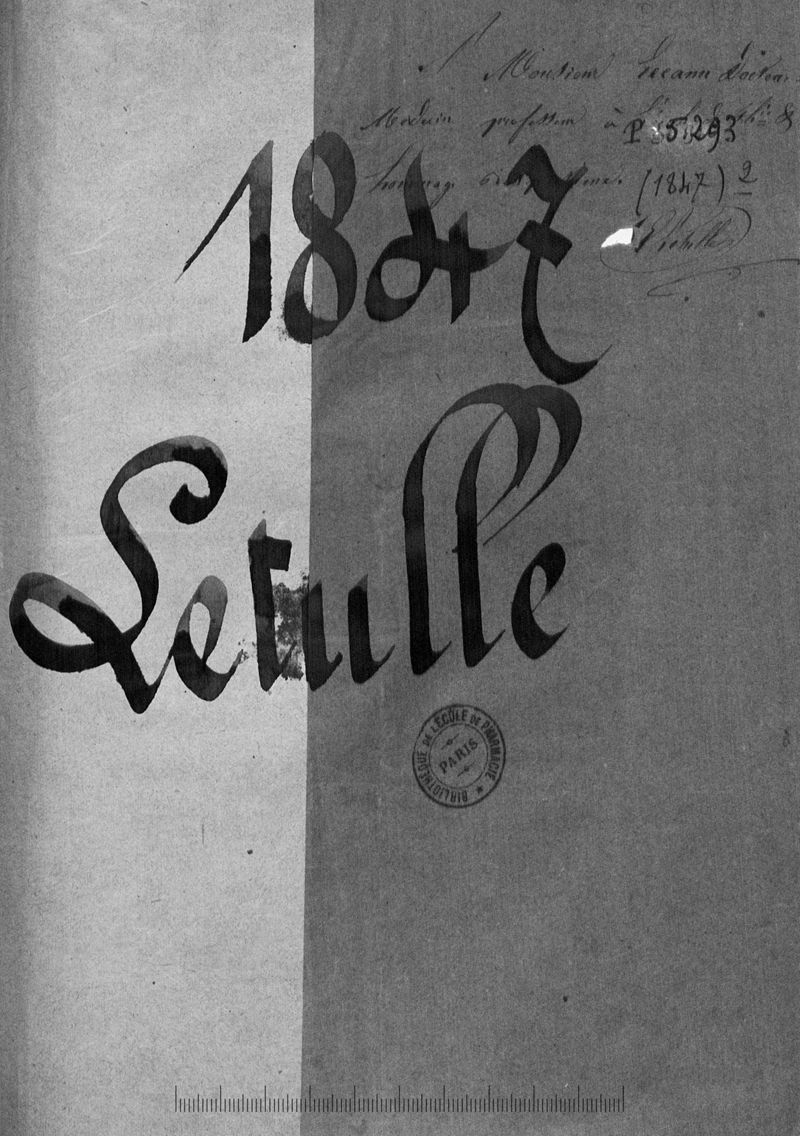 Monsieur Lecanu Docteur
Médecin professeur à
P 5293
hommage
(1847) 2
1847
Letulle
BIBLIOTHÈQUE DE L'ÉCOLE DE PHARMACIE
PARIS